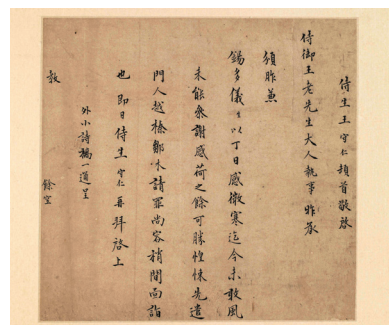 侍生王守仁頓首敬啓
侍御王老先生大人執事昨承
須昨兼
錫多儀生以丁日感微寒迄今未敢風
未能参謝感荷之餘可勝惶悚先遣
門人越榛鄒木請罪尚容稍間面詣
也即日侍生守仁再拜啓上
外小詩稿一通呈
教
餘空